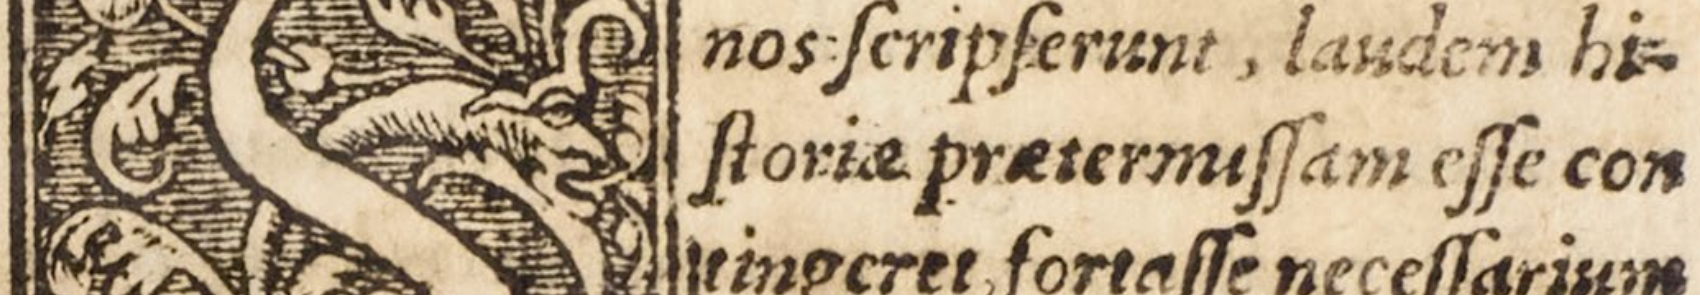 nos ſcripſerunt, laudem hi-
ſtoriæ prætermiſſam eſſe con
uingeret, fortaſſe neceſſarium